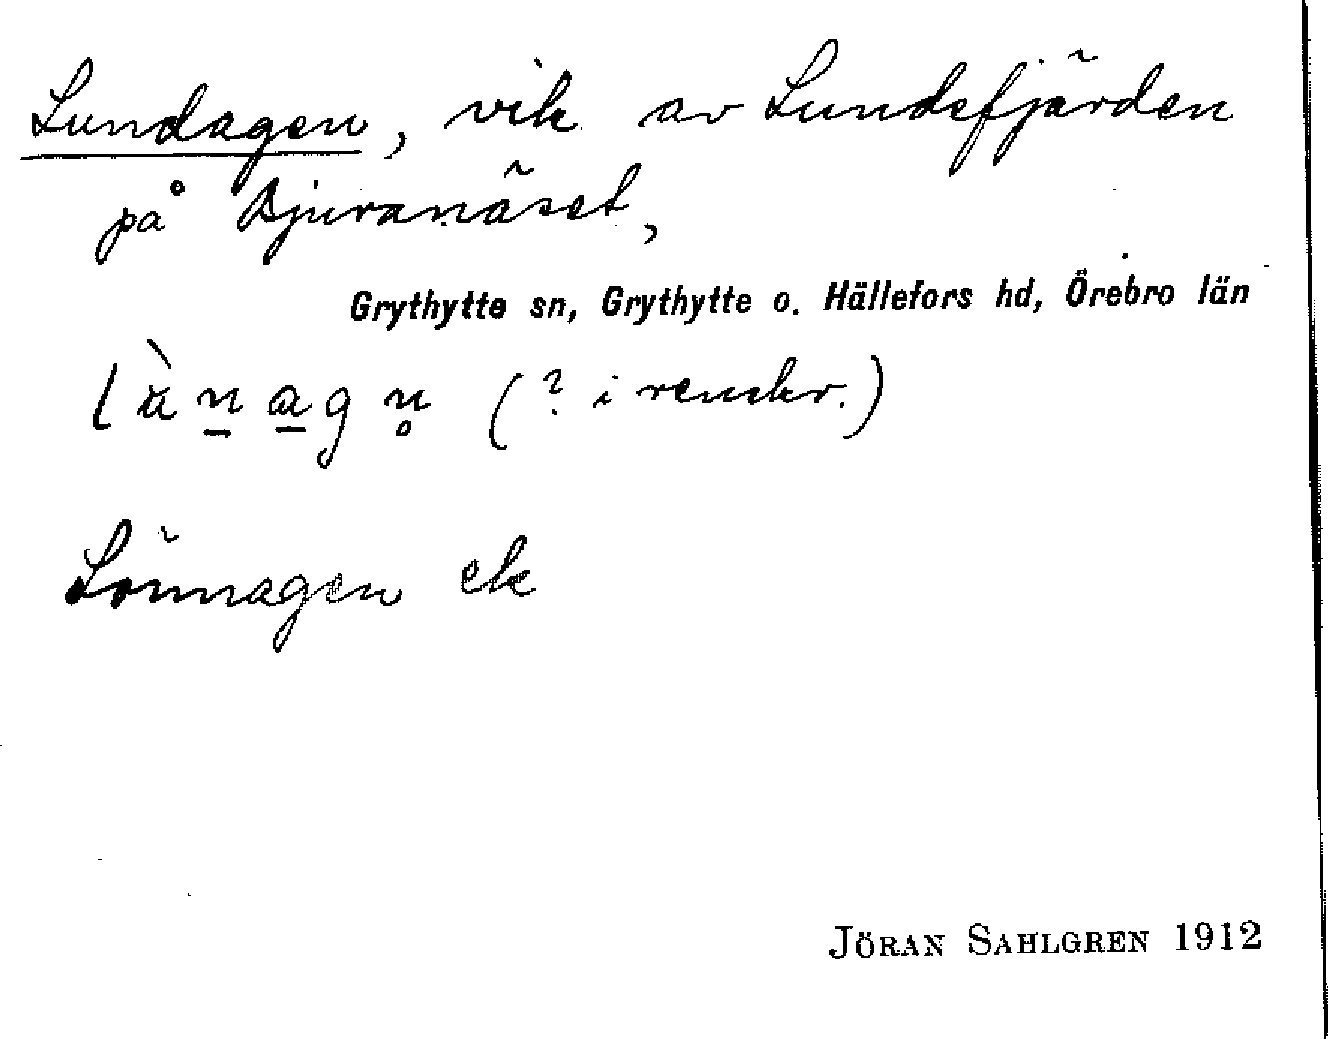 Lundagen, vik av Lundsfjärden
på Bjuranäset,
Grythytte sn, Grythytte o. Hällefors hd, Örebro län
(? i renskr.)
Lönnagen ek
JÖRAN SAHLGREN 1912